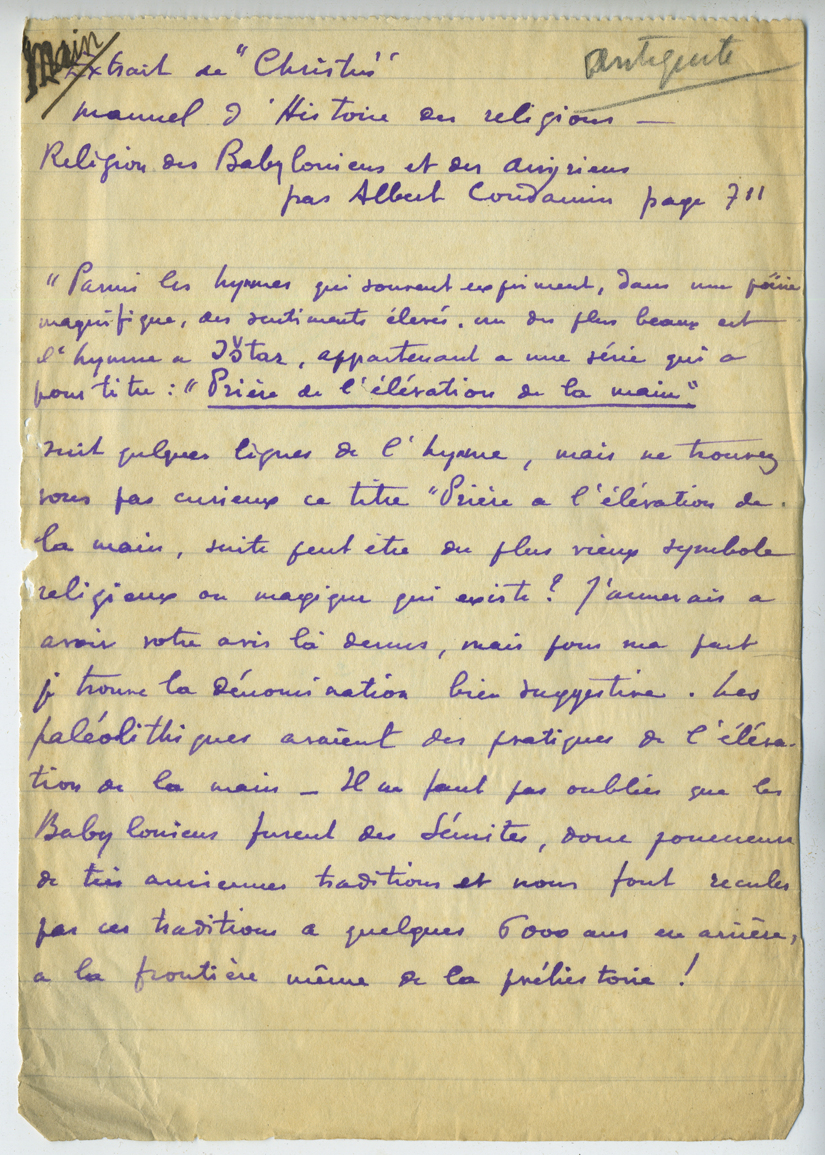 Main
antiquité
Extrait de "Christus"
manuel d'Histoire des religions —
Religion des Babyloniens et des assyriens
par Albert Condamin page 711
"Parmi les hymnes qui souvent expriment, dans une poésie
magnifique, des sentiments élevés. un des plus beaux est
l'hymne a Ištar, appartenant a une série qui a
pour titre : "Prière de l'élévation de la main"
suit quelques lignes de l'hymne, mais ne trouvez
vous pas curieux ce titre "Prière a l'élévation de
la main, suite peut être du plus vieux symbole
religieux ou magique qui existe ? J'aimerais a
avoir votre avis là dessus, mais pour ma part
je trouve la dénomination bien suggestive. Les
paléolithiques avaient des pratiques de l'éléva-
tion de la main — Il ne faut pas oublier que les
Babyloniens furent des Sémites, donc
de très anciennes traditions et nous font reculer
par ces traditions a quelques 6000 ans en arrière,
a la frontière même de la préhistoire !